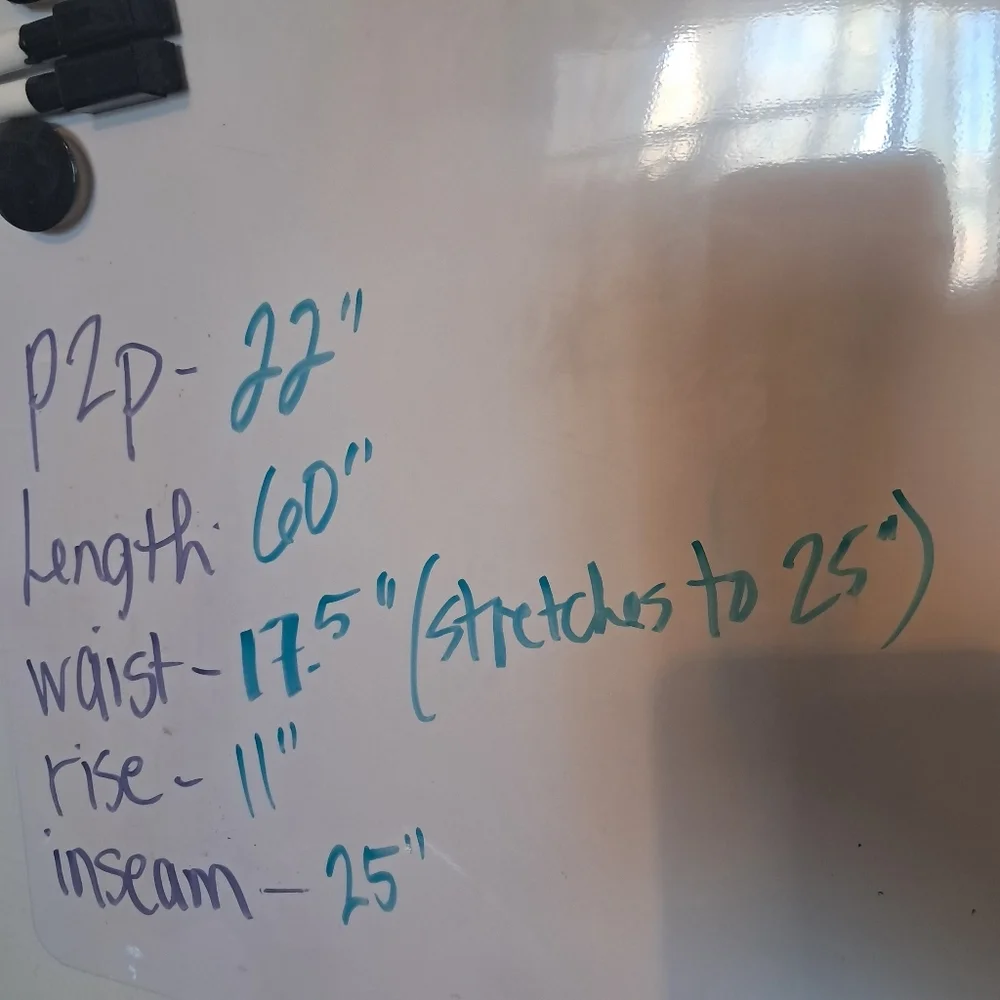 p2p- 22"
Length- 60"
waist- 17.5" (stretches to 25")
rise- 11"
inseam - 25"